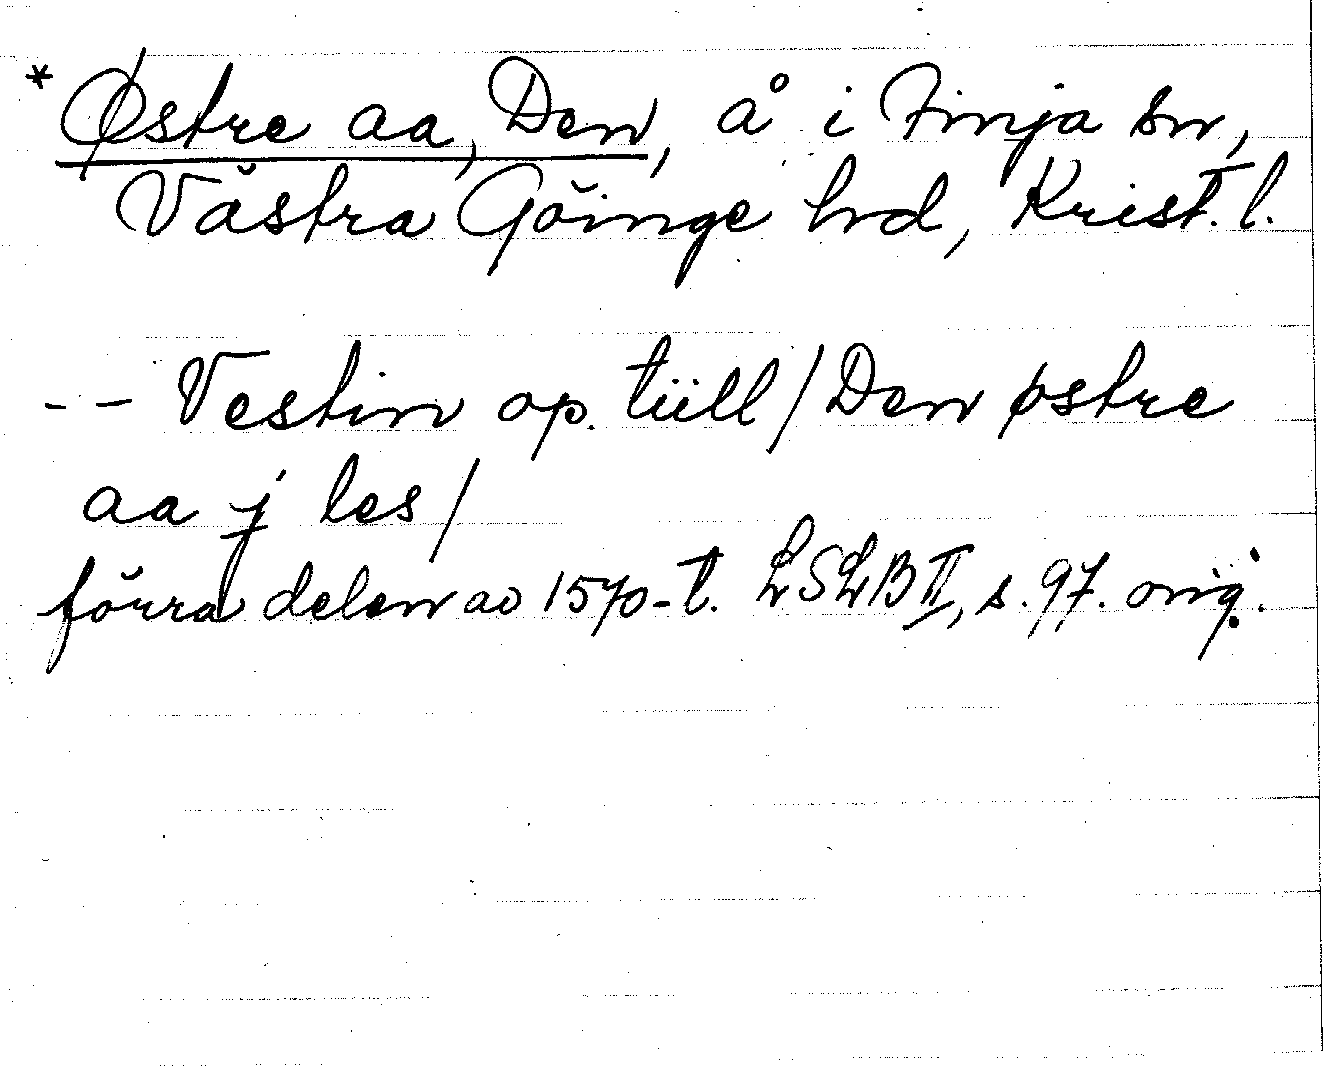 * Østre aa, Den, å i Finja sn,
Västra Göinge hrd, Krist. l.
-- Vestin op. tiill / Den østre
aa j les /
förra delen av 1570-t. LSLB II, s. 97. orig.